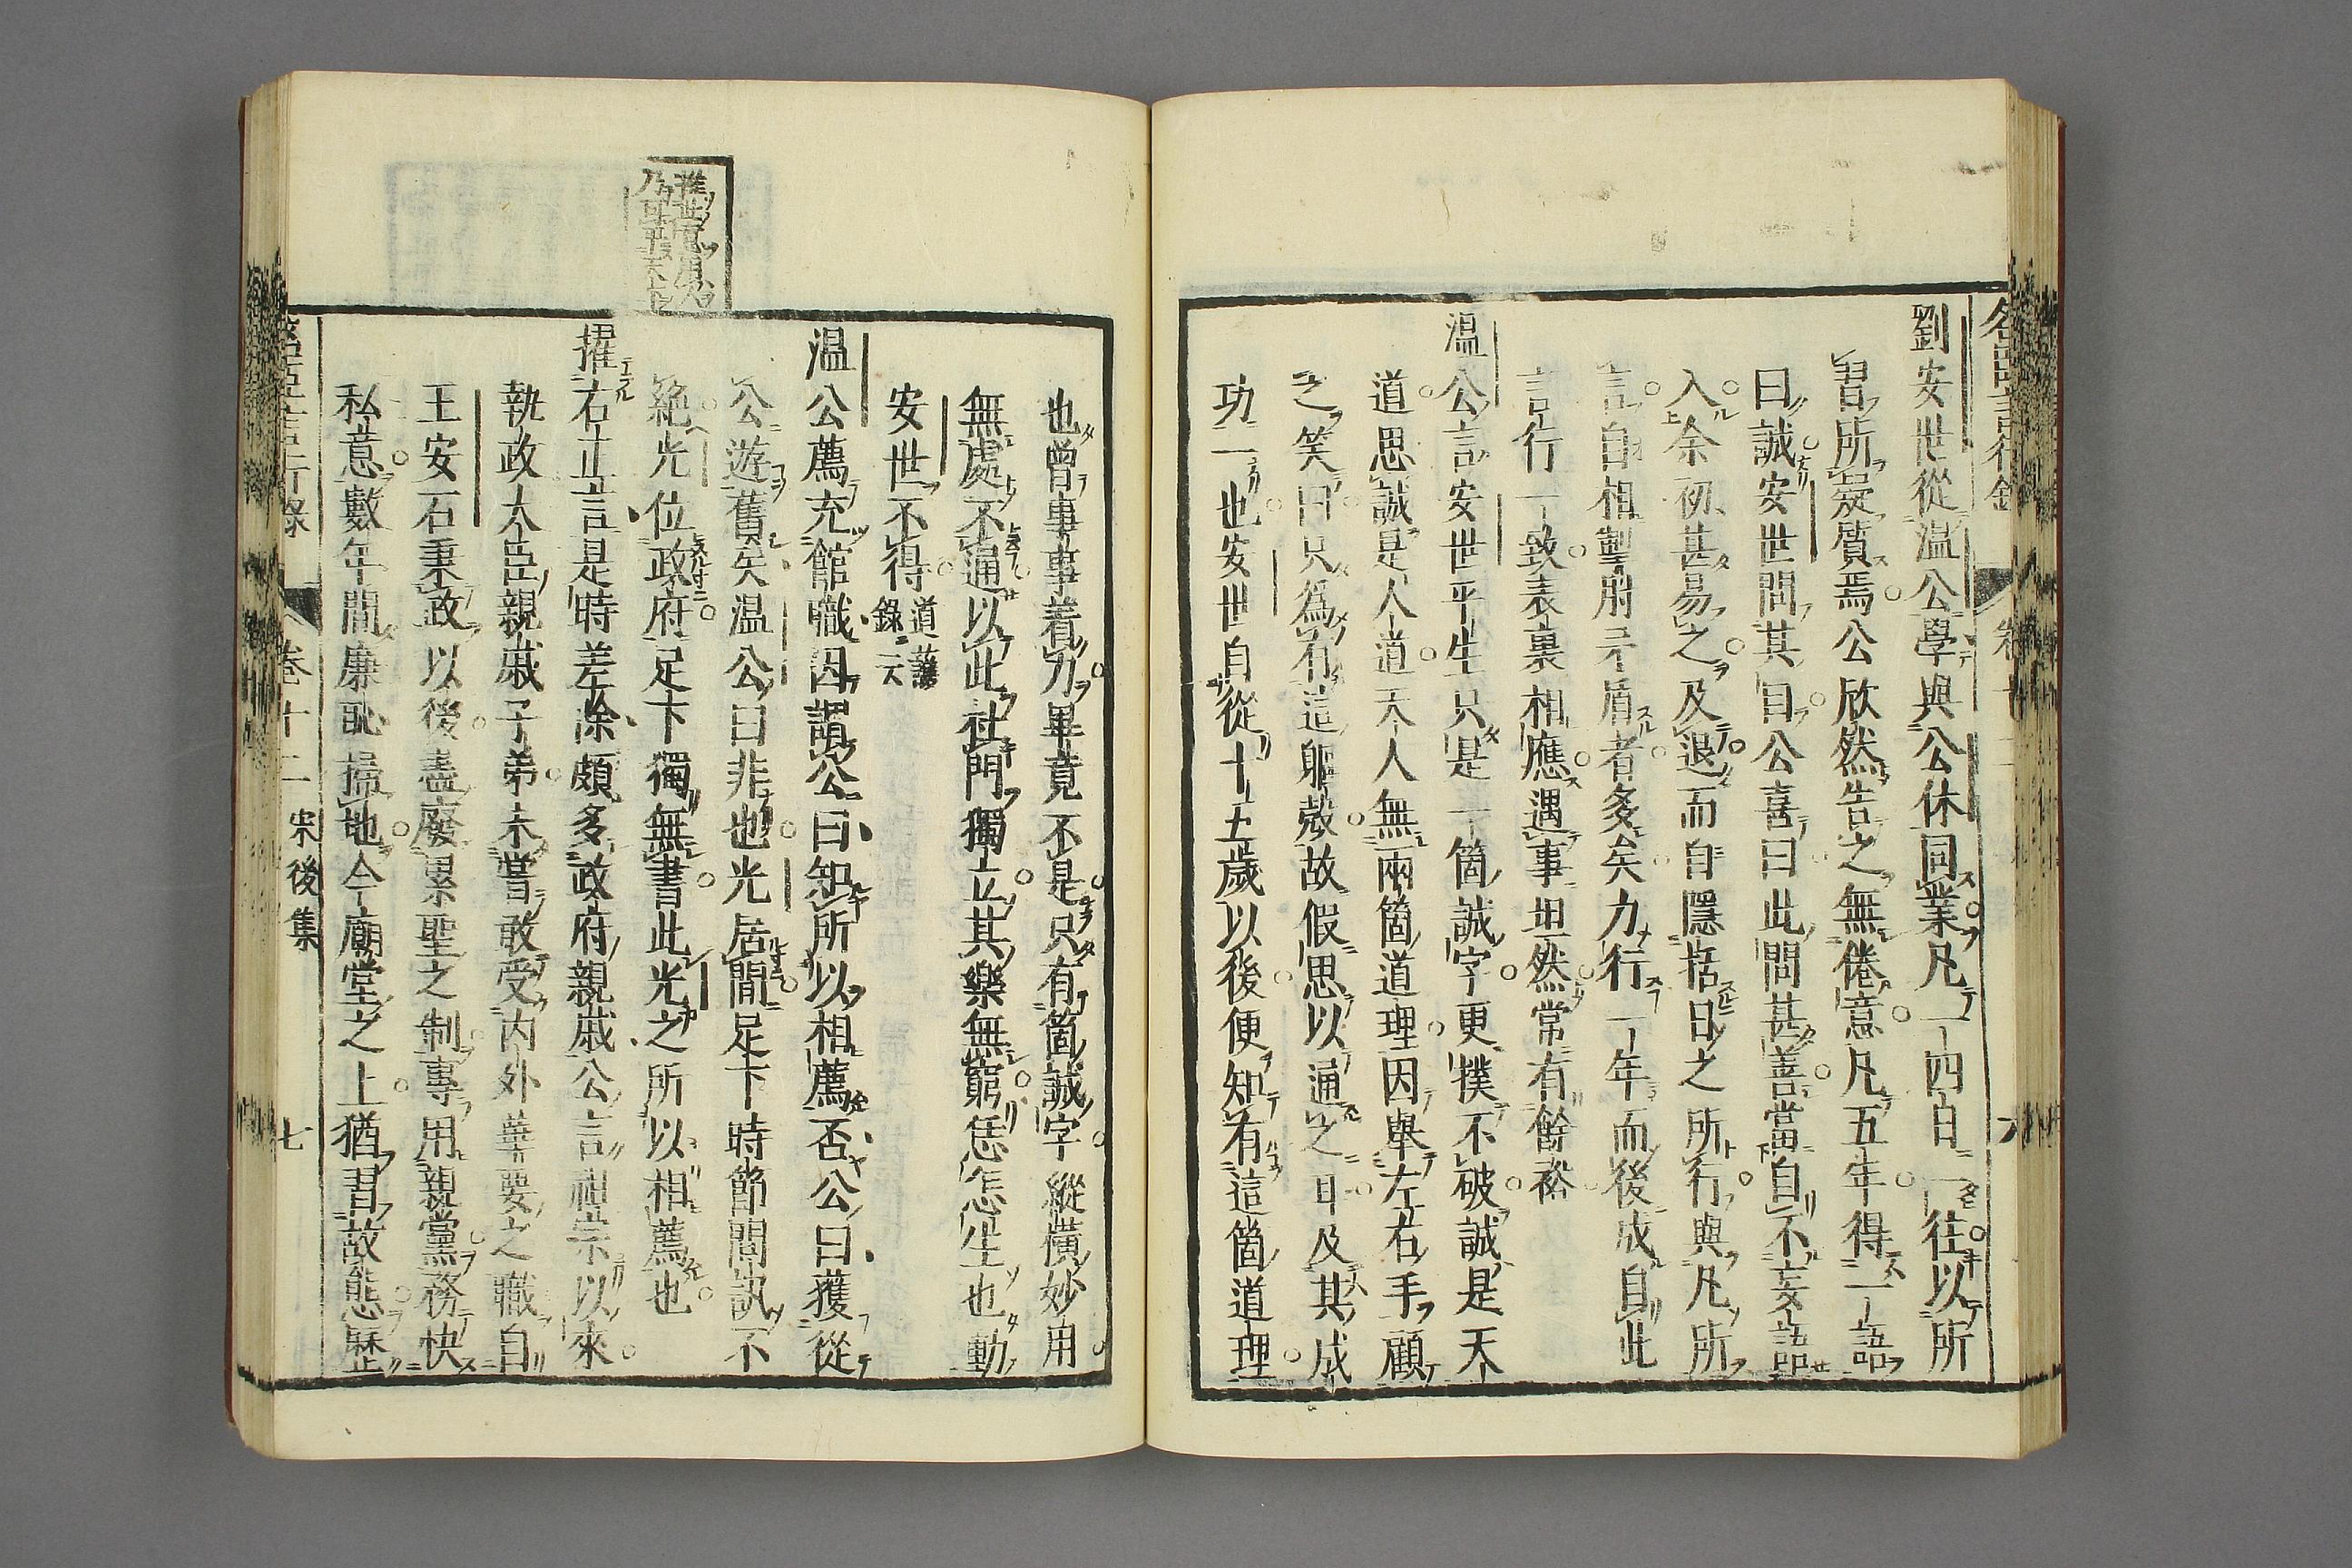 劉安世從温公學與公休同業凡一四日一往以所
習所疑質焉公欣然告之無倦意凡五年得一語
曰誠安世問其目公喜曰此問甚善當自不妄語
入余初甚易之及退而自隱括日之所行與凡所
言自相掣肘矛盾者多矣力行一年而後成自此
言行一致表裏相應遇事坦然常有餘裕
温公言安世平生只是一箇誠字更撲不破誠是天
道思誠是人道天人無兩箇道理因舉左右手顧
之笑曰只爲有這軀殼故假思以通之耳及其成
功一也安世自從十五歲以後便知有這箇道理
也曾事事着力畢竟不是只有箇誠字縱橫妙用
無處不通以此社門獨立其樂無窮恁怎生也動
安世不得
道護
錄二六
温公薦充館職因謂公曰知所以相薦否公曰獲從
公遊舊矣温公曰非也光居閒足下時節問訊不
絶光位政府足下獨無書此光之所以相薦也
擢右正言是時差除頗多政府親戚公言祖宗以來
執政大臣親戚子弟未嘗敢受内外華要之職自
王安石秉政以後盡廢累聖之制專用親黨務快
私意數年間廉恥掃地今廟堂之上猶習故態歷
卷十二
宋後集
七